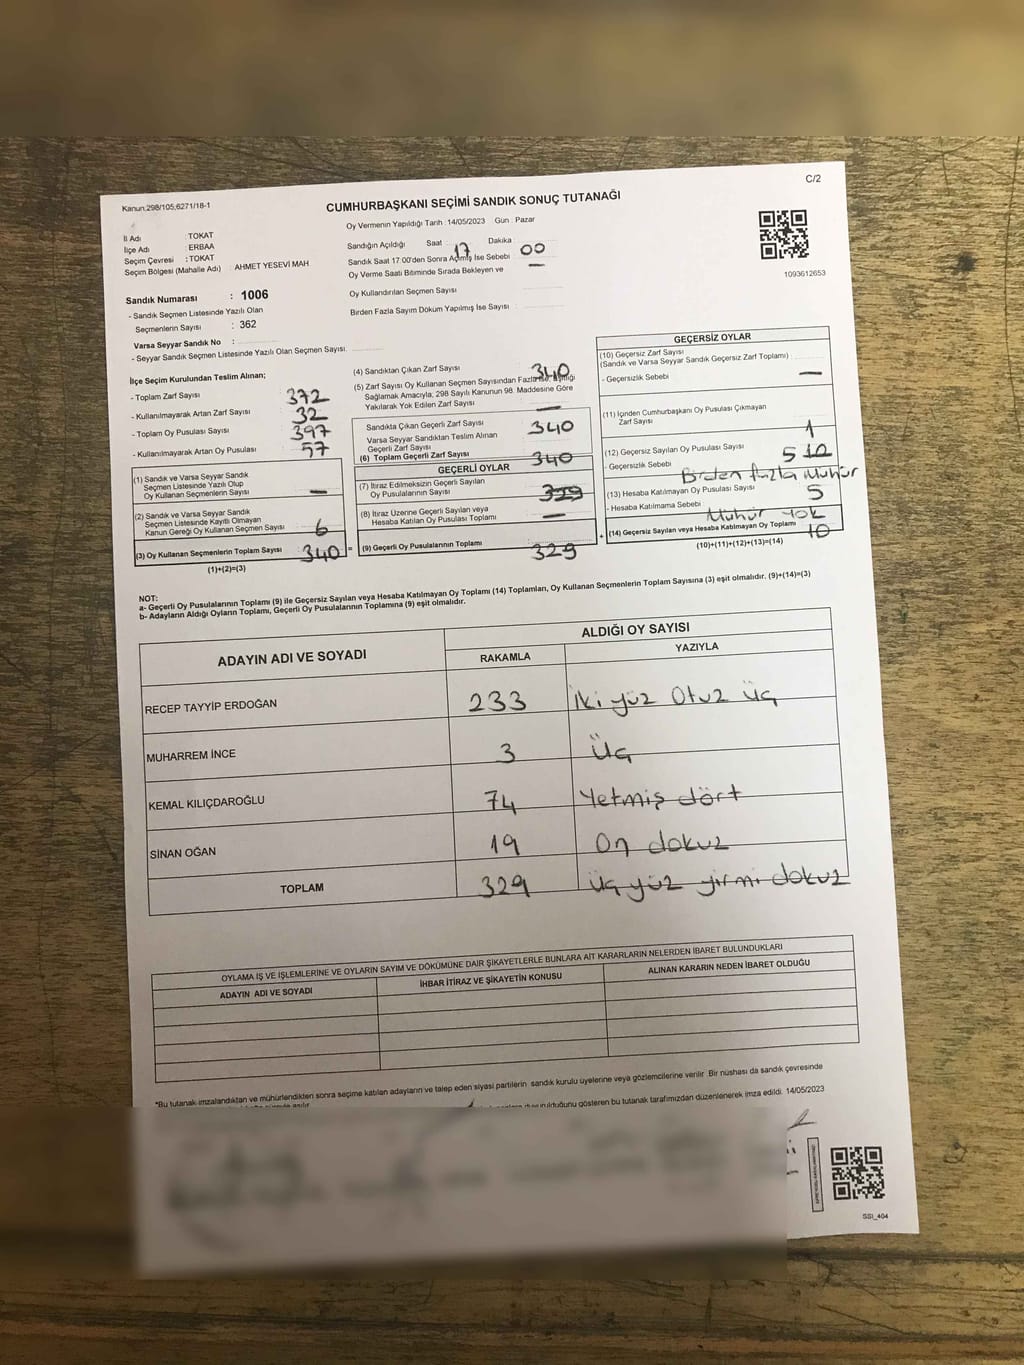 C/2
Kanun:298/105,6271/18-1
CUMHURBAŞKANI SEÇİMİ SANDIK SONUÇ TUTANAĞI
Oy Vermenin Yapıldığı Tarih : 14/05/2023 Gün : Pazar
İl Adı : TOKAT
İlçe Adı : ERBAA
Seçim Çevresi : TOKAT
Seçim Bölgesi (Mahalle Adı) : AHMET YESEVİ MAH
Sandığın Açıldığı Saat : 17 Dakika : 00
Sandık Saat 17:00'den Sonra Açılmış İse Sebebi : —
Oy Verme Saati Bitiminde Sırada Bekleyen ve
Oy Kullandırılan Seçmen Sayısı :
Birden Fazla Sayım Döküm Yapılmış İse Sayısı :
1093612653
Sandık Numarası : 1006
- Sandık Seçmen Listesinde Yazılı Olan
Seçmenlerin Sayısı : 362
Varsa Seyyar Sandık No :
- Seyyar Sandık Seçmen Listesinde Yazılı Olan Seçmen Sayısı:
İlçe Seçim Kurulundan Teslim Alınan;
- Toplam Zarf Sayısı : 372
- Kullanılmayarak Artan Zarf Sayısı : 32
- Toplam Oy Pusulası Sayısı : 397
- Kullanılmayarak Artan Oy Pusulası : 57
(1) Sandık ve Varsa Seyyar Sandık
Seçmen Listesinde Yazılı Olup
Oy Kullanan Seçmenlerin Sayısı : —
(2) Sandık ve Varsa Seyyar Sandık
Seçmen Listesinde Kayıtlı Olmayan
Kanun Gereği Oy Kullanan Seçmen Sayısı : 6
(3) Oy Kullanan Seçmenlerin Toplam Sayısı : 340 =
(1)+(2)=(3)
(4) Sandıktan Çıkan Zarf Sayısı : 340
(5) Zarf Sayısı Oy Kullanan Seçmen Sayısından Fazla ise, Eşitliği
Sağlamak Amacıyla, 298 Sayılı Kanunun 98. Maddesine Göre
Yakılarak Yok Edilen Zarf Sayısı : —
Sandıkta Çıkan Geçerli Zarf Sayısı : 340
Varsa Seyyar Sandıktan Teslim Alınan
Geçerli Zarf Sayısı :
(6) Toplam Geçerli Zarf Sayısı : 340
GEÇERLİ OYLAR
(7) İtiraz Edilmeksizin Geçerli Sayılan
Oy Pusulalarının Sayısı : 329
(8) İtiraz Üzerine Geçerli Sayılan veya
Hesaba Katılan Oy Pusulası Toplamı : —
(9) Geçerli Oy Pusulalarının Toplamı : 329 +
GEÇERSİZ OYLAR
(10) Geçersiz Zarf Sayısı
(Sandık ve Varsa Seyyar Sandık Geçersiz Zarf Toplamı) :
- Geçersizlik Sebebi : —
(11) İçinden Cumhurbaşkanı Oy Pusulası Çıkmayan
Zarf Sayısı : 1
(12) Geçersiz Sayılan Oy Pusulası Sayısı : 5
- Geçersizlik Sebebi : Birden fazla Mühür
(13) Hesaba Katılmayan Oy Pusulası Sayısı : 5
- Hesaba Katılmama Sebebi : Mühür Yok
(14) Geçersiz Sayılan veya Hesaba Katılmayan Oy Toplamı : 10
(10)+(11)+(12)+(13)=(14)
NOT:
a- Geçerli Oy Pusulalarının Toplamı (9) ile Geçersiz Sayılan veya Hesaba Katılmayan Oy Toplamı (14) Toplamları, Oy Kullanan Seçmenlerin Toplam Sayısına (3) eşit olmalıdır. (9)+(14)=(3)
b- Adayların Aldığı Oyların Toplamı, Geçerli Oy Pusulalarının Toplamına (9) eşit olmalıdır.
ADAYIN ADI VE SOYADI ALDIĞI OY SAYISI
RAKAMLA YAZIYLA
RECEP TAYYİP ERDOĞAN 233 İki yüz Otuz üç
MUHARREM İNCE 3 Üç
KEMAL KILIÇDAROĞLU 74 Yetmiş dört
SİNAN OĞAN 19 On dokuz
TOPLAM 329 üç yüz yirmi dokuz
OYLAMA İŞ VE İŞLEMLERİNE VE OYLARIN SAYIM VE DÖKÜMÜNE DAİR ŞİKAYETLERLE BUNLARA AİT KARARLARIN NELERDEN İBARET BULUNDUKLARI
ADAYIN ADI VE SOYADI İHBAR İTİRAZ VE ŞİKAYETİN KONUSU ALINAN KARARIN NEDEN İBARET OLDUĞU
*Bu tutanak imzalandıktan ve mühürlendikten sonra seçime katılan adayların ve talep eden siyasi partilerin sandık kurulu üyelerine veya gözlemcilerine verilir. Bir nüshası da sandık çevresinde
duyurulduğunu gösteren bu tutanak tarafımızdan düzenlenerek imza edildi. 14/05/2023
SSI_404